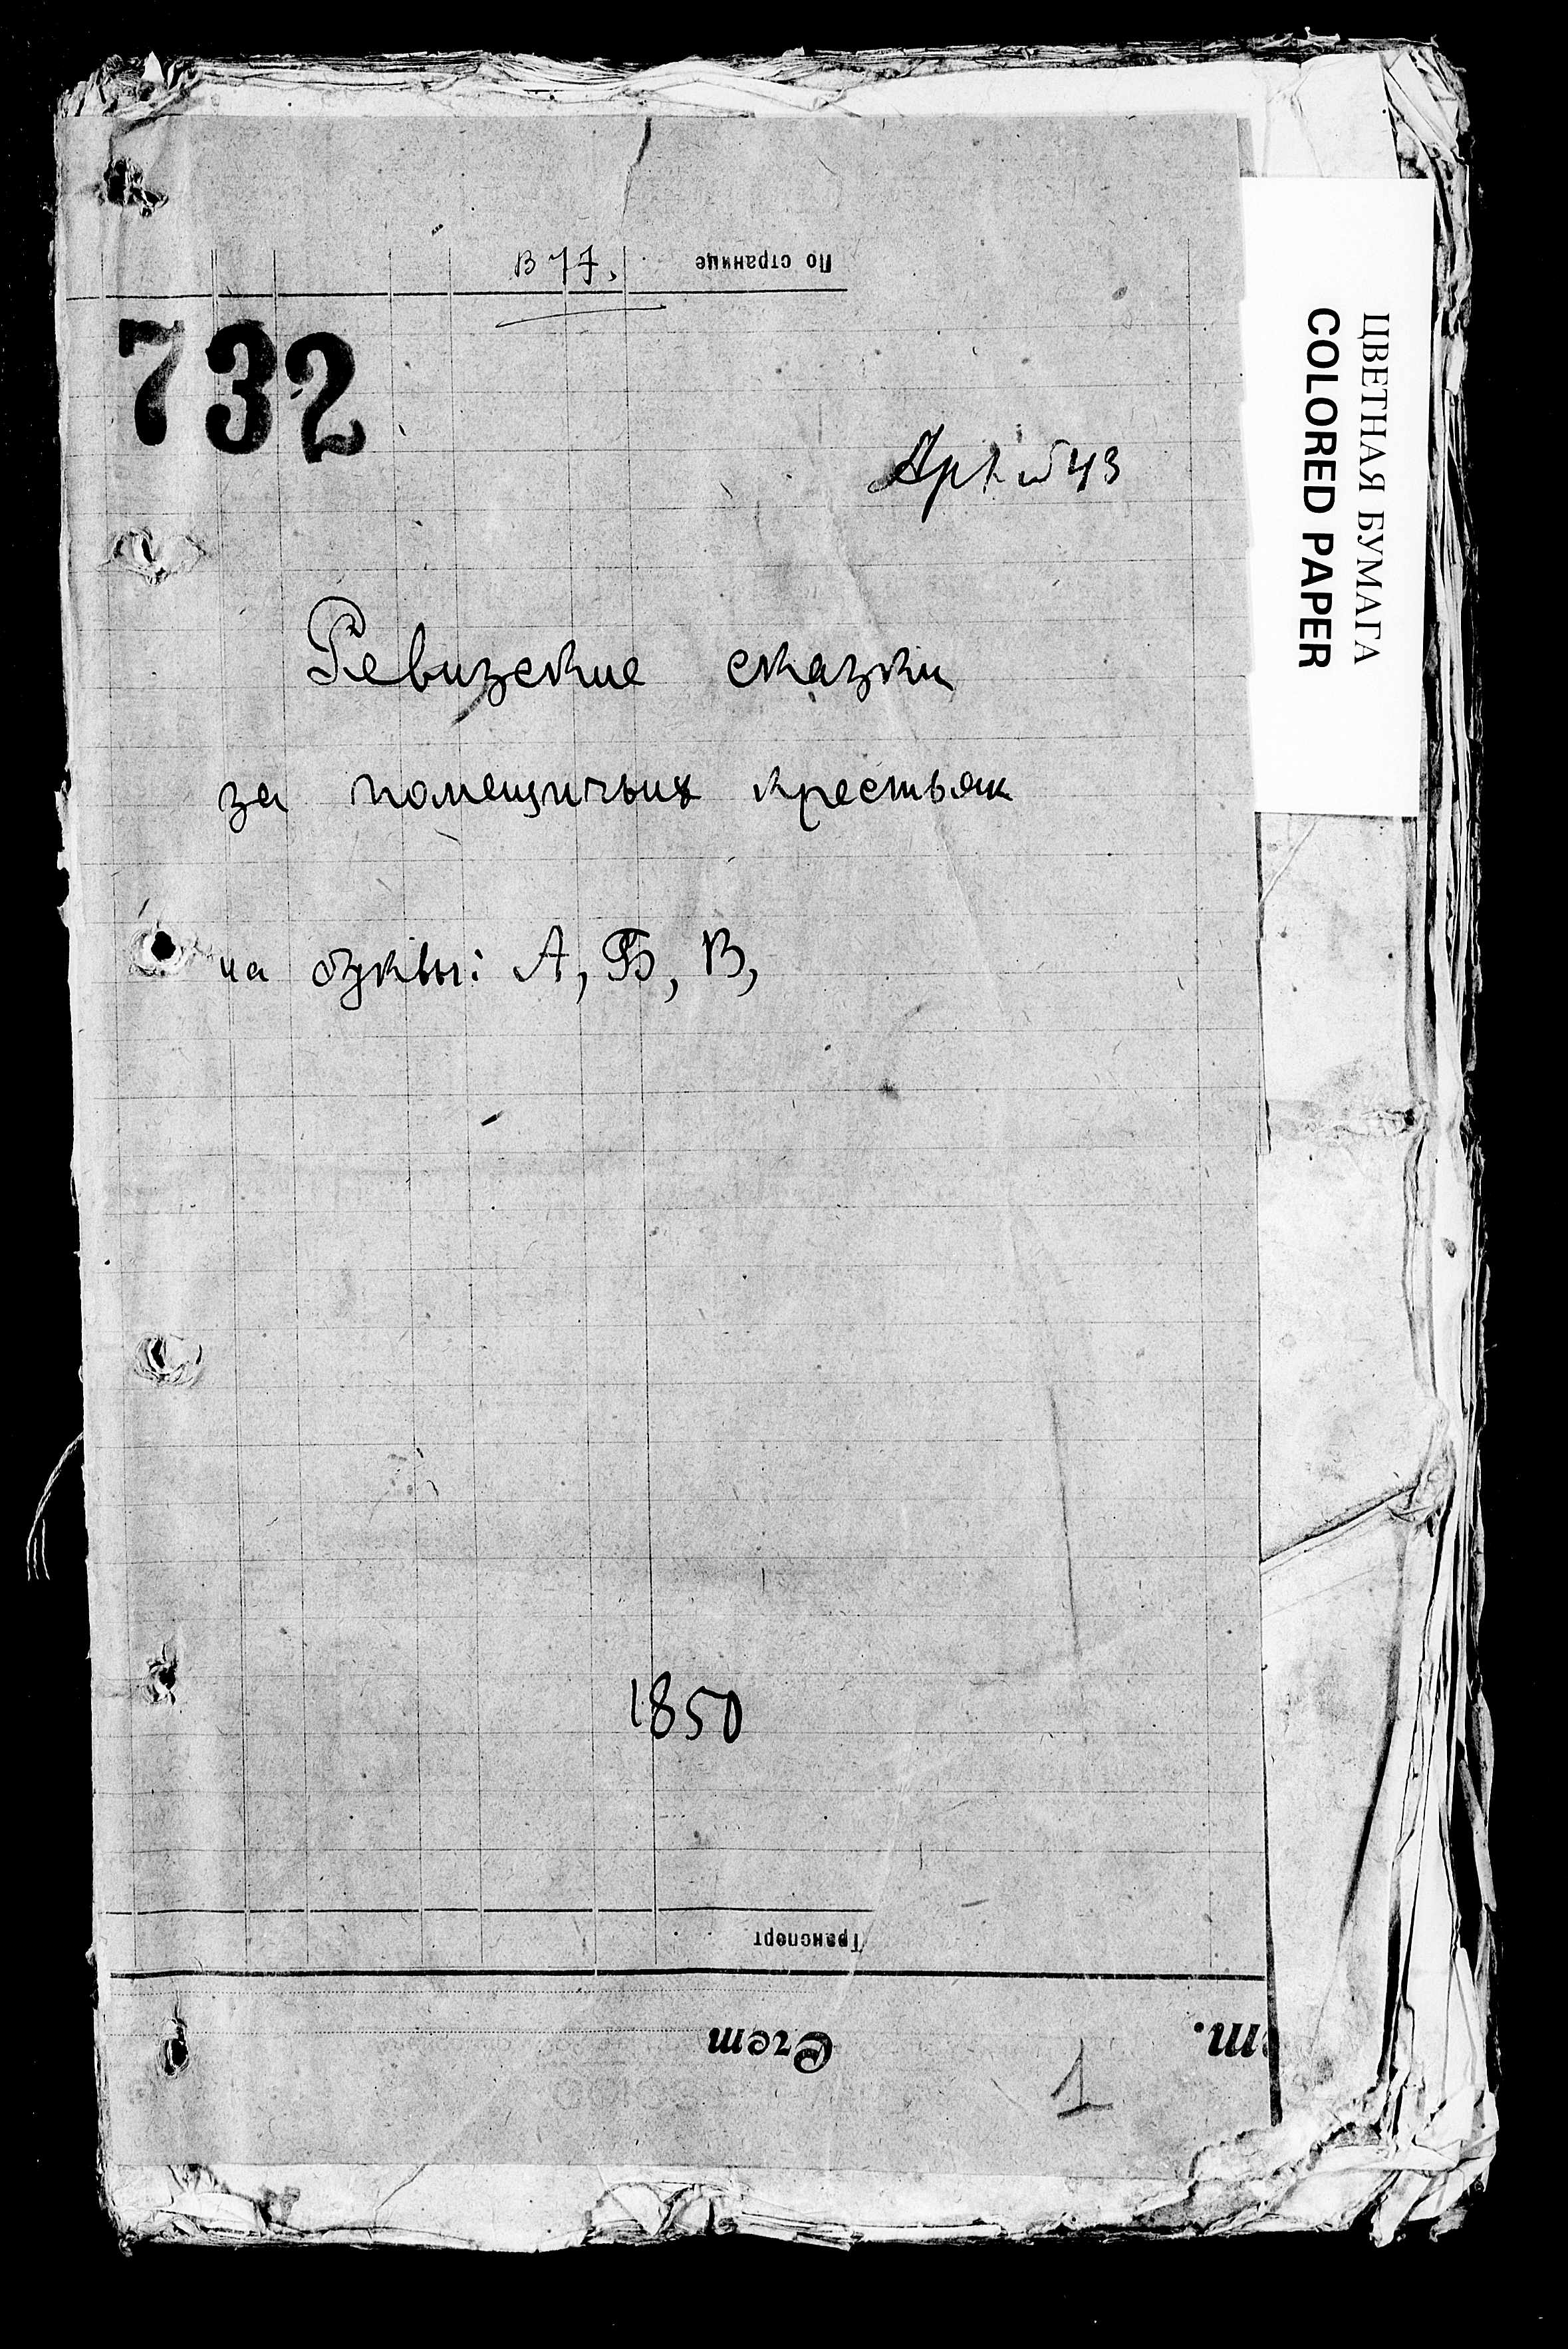 В 77.
По странице
732
Арх № 43
Ревизские сказки
за помещичьих крестьян
на буквы: А, Б, В,
1850
Транспорт
Счет
1
ЦВЕТНАЯ БУМАГА
COLORED PAPER